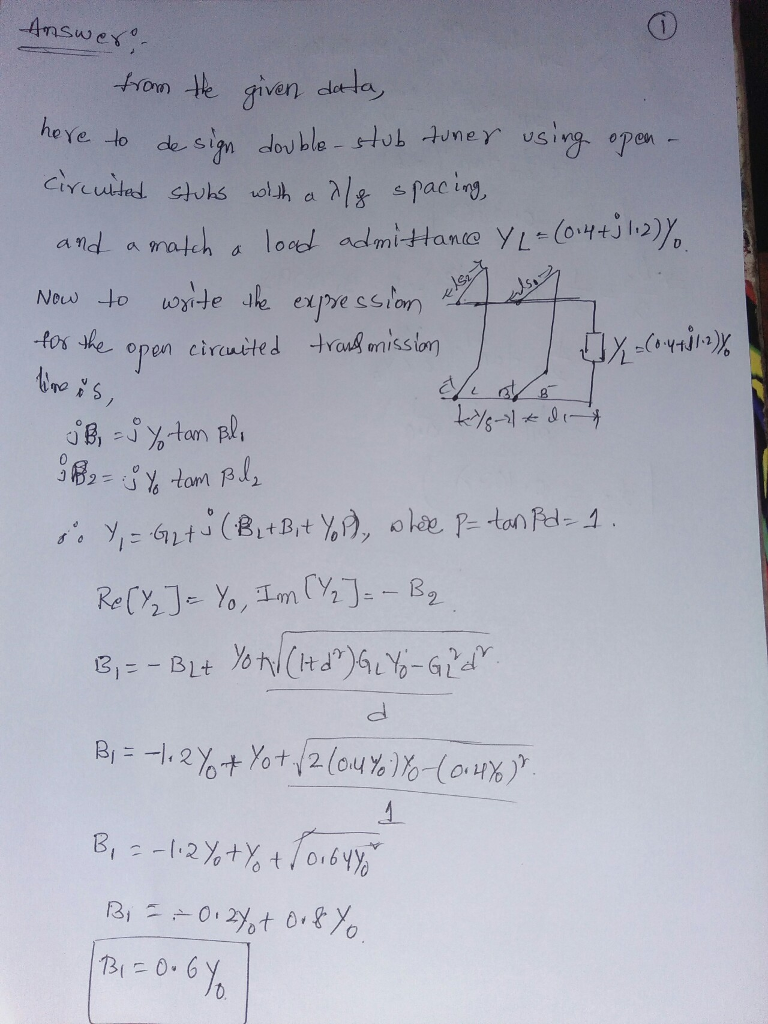 Answer:-
①
from the given data,
here to design double-stub tuner using open-
circuited stubs with a λ/8 spacing,
and a match a load admittance YL=(0.4+j1.2)Y0.
Now to write the expression
for the open circuited transmission
line is,
YL=(0.4+j1.2)Y0
jB1 = jY0 tan βl1
jB2 = jY0 tan βl2
∴ Y1 = GL+j(BL+B1+Y0P), where P= tanβd= 1.
Re[Y2]= Y0, Im[Y2]= - B2
B1 = - BL+ Y0+√(1+d²)GLY0-GL²d²
d
B1 = -1.2Y0+Y0+√2(0.4Y0)Y0-(0.4Y0)²
1
B1 = -1.2Y0+Y0+√0.64Y0²
B1 = -0.2Y0+0.8Y0
B1=0.6Y0